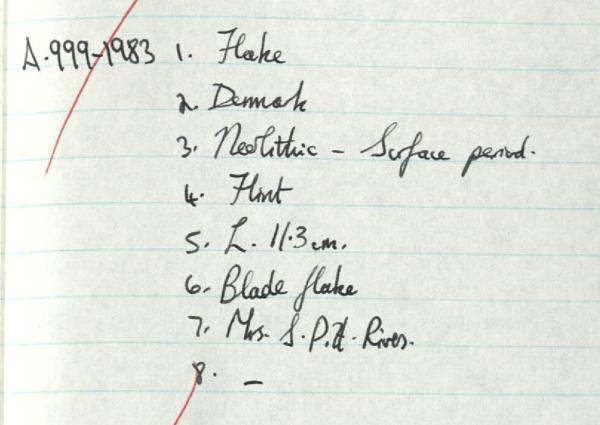 A.999-1983 1. Flake
2. Denmark
3. Neolithic - Surface period.
4. Flint
5. L. 11.3 cm.
6. Blade flake
7. Mrs. S.P.H. Rivers.
8. –